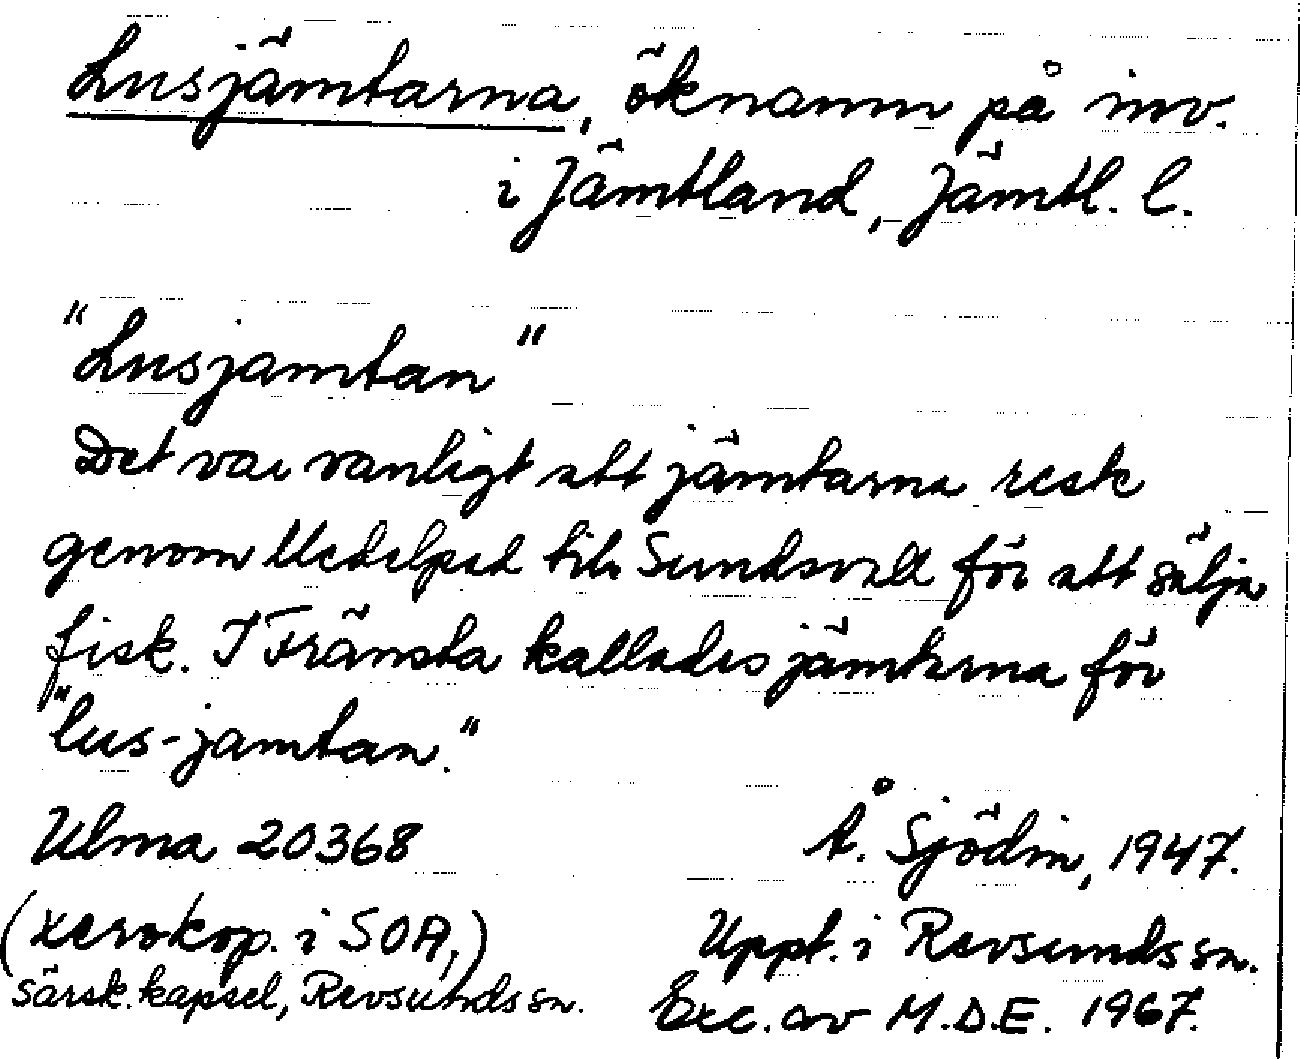 Lusjämtarna, öknamn på inv.
i Jämtland, Jämtl. l.
"Lusjamtan"
Det var vanligt att jämtarna resk
genom Medelpad till Sundsvall för att sälja
fisk. I Fränsta kallades jämterna för
"lus-jamtan."
Ulma 20368
Å. Sjödin, 1947.
(xerokop. i SOA,)
Uppt. i Revsunds sn.
särsk. kapsel, Revsunds sn.
Exc. av M.D.E. 1967.